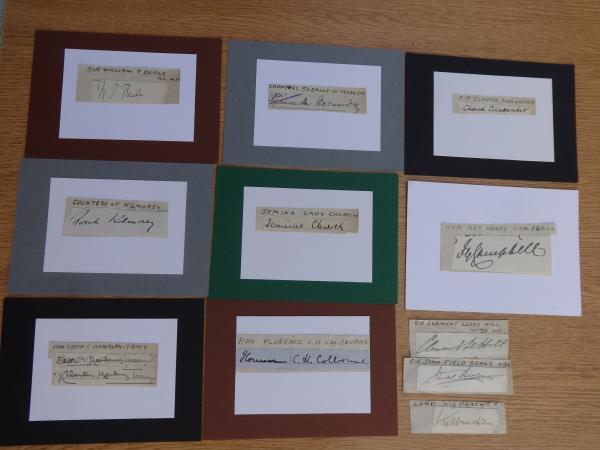 SIR WILLIAM P BEALE
KC. MP
W P Beale
COUNTESS SUZANNE DE
SIR CLAUDE ALEXANDER
Claud Alexander
COUNTESS OF KILMOREY
Kilmorey
JEMINA LADY CHURCH
Jemima Church
HON MRS HENRY CAMPBELL
Campbell
HON EDITH C HANBURY-TRACY
HON FLORENCE C H COLBOURNE
Florence C. H. Colborne
SIR CLEMENT LLOYD HILL
Clement Ll Hill
SIR JOHN FIELD BEALE KBE
LORD KILBRACKEN
Kilbracken